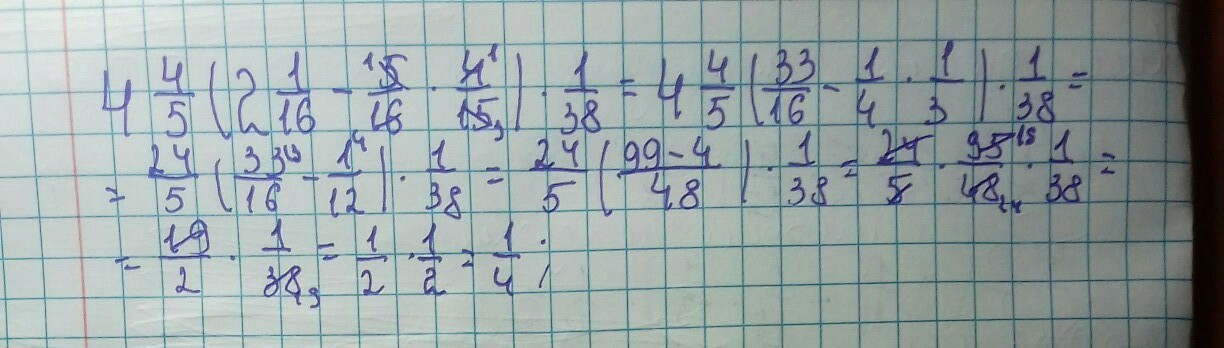 4 4/5 (2 1/16 - 5/16 · 4/15) · 1/38 = 4 4/5 (33/16 - 1/4 · 1/3) · 1/38 =
= 24/5 (33/16 - 1/12) · 1/38 = 24/5 (99-4/48) · 1/38 = 24/5 · 95/48 · 1/38 =
= 19/2 · 1/38 = 1/2 · 1/2 = 1/4 ;